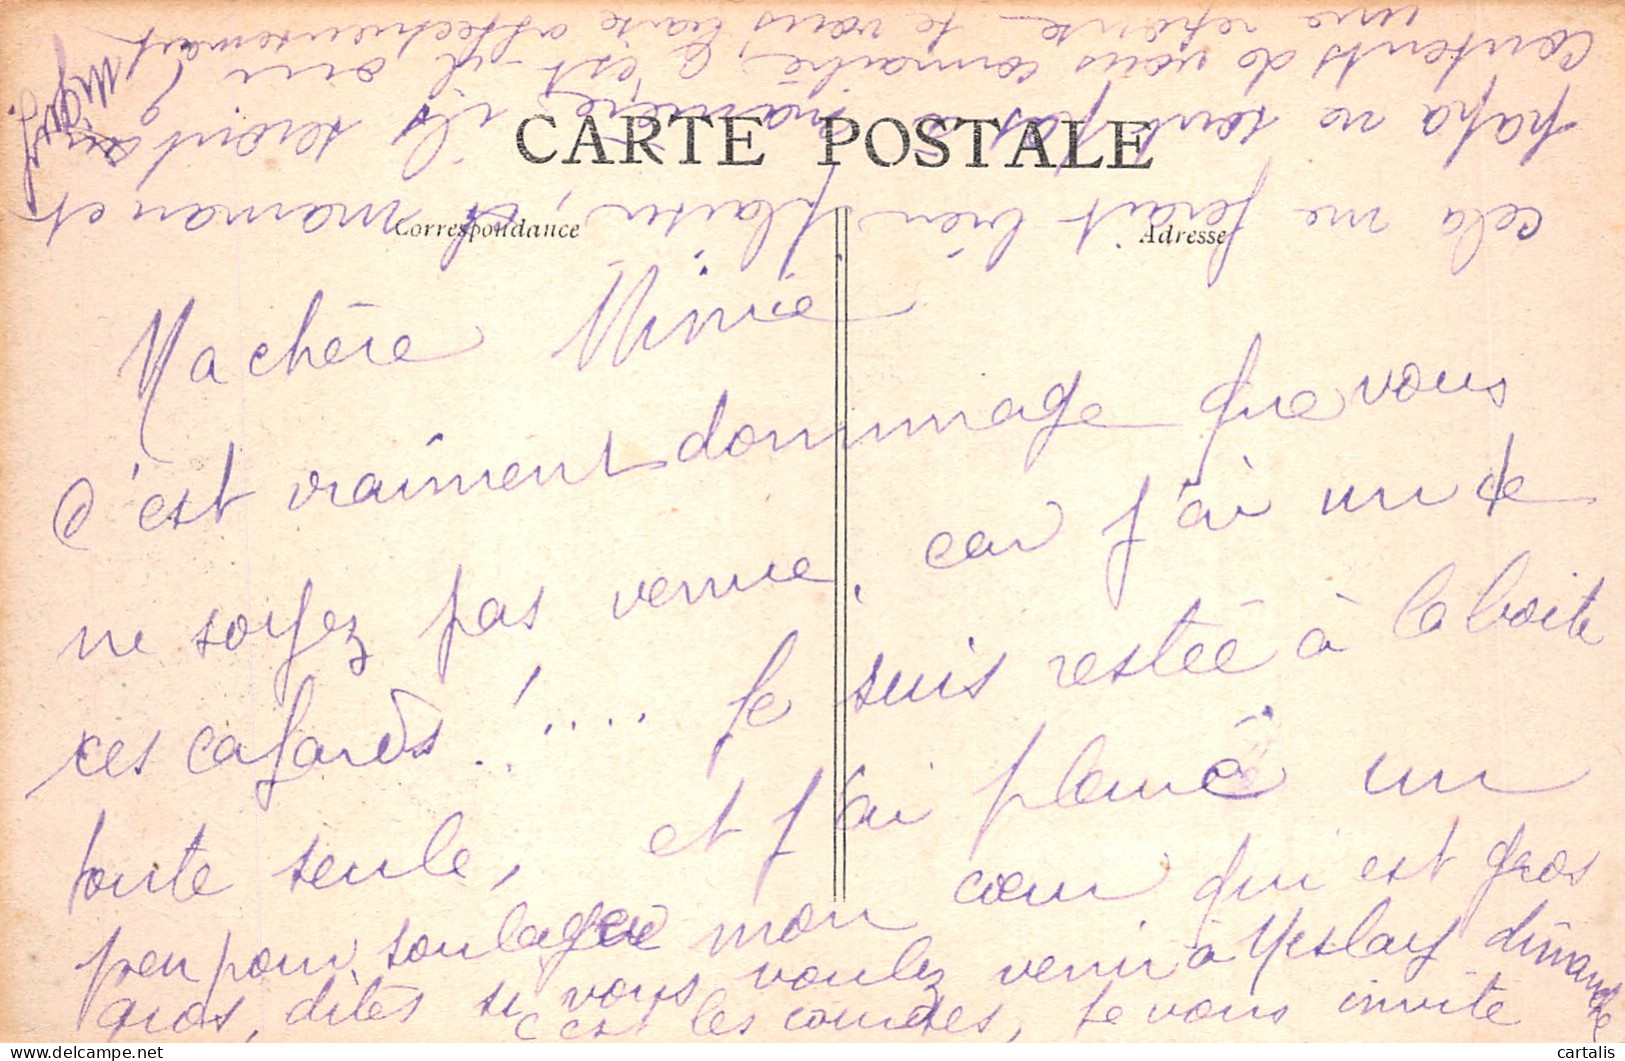 CARTE POSTALE
Correspondance
Adresse
Ma chère Minie
C'est vraiment dommage que vous
ne soyez pas venue, car j'ai un de
ces cafards !.... Je suis restée à la boite
toute seule, et j'ai pleuré un
peu pour soulager mon cœur qui est gros
gros, dites si vous voulez venir à Meslay dimanche
c'est les courses, je vous invite
cela me ferait bien plaisir, et maman et
papa ne sont pas à manière, ils seront
contents de vous connaître, c'est-il oui
une réponse. Je vous baise affectueusement
cartalis